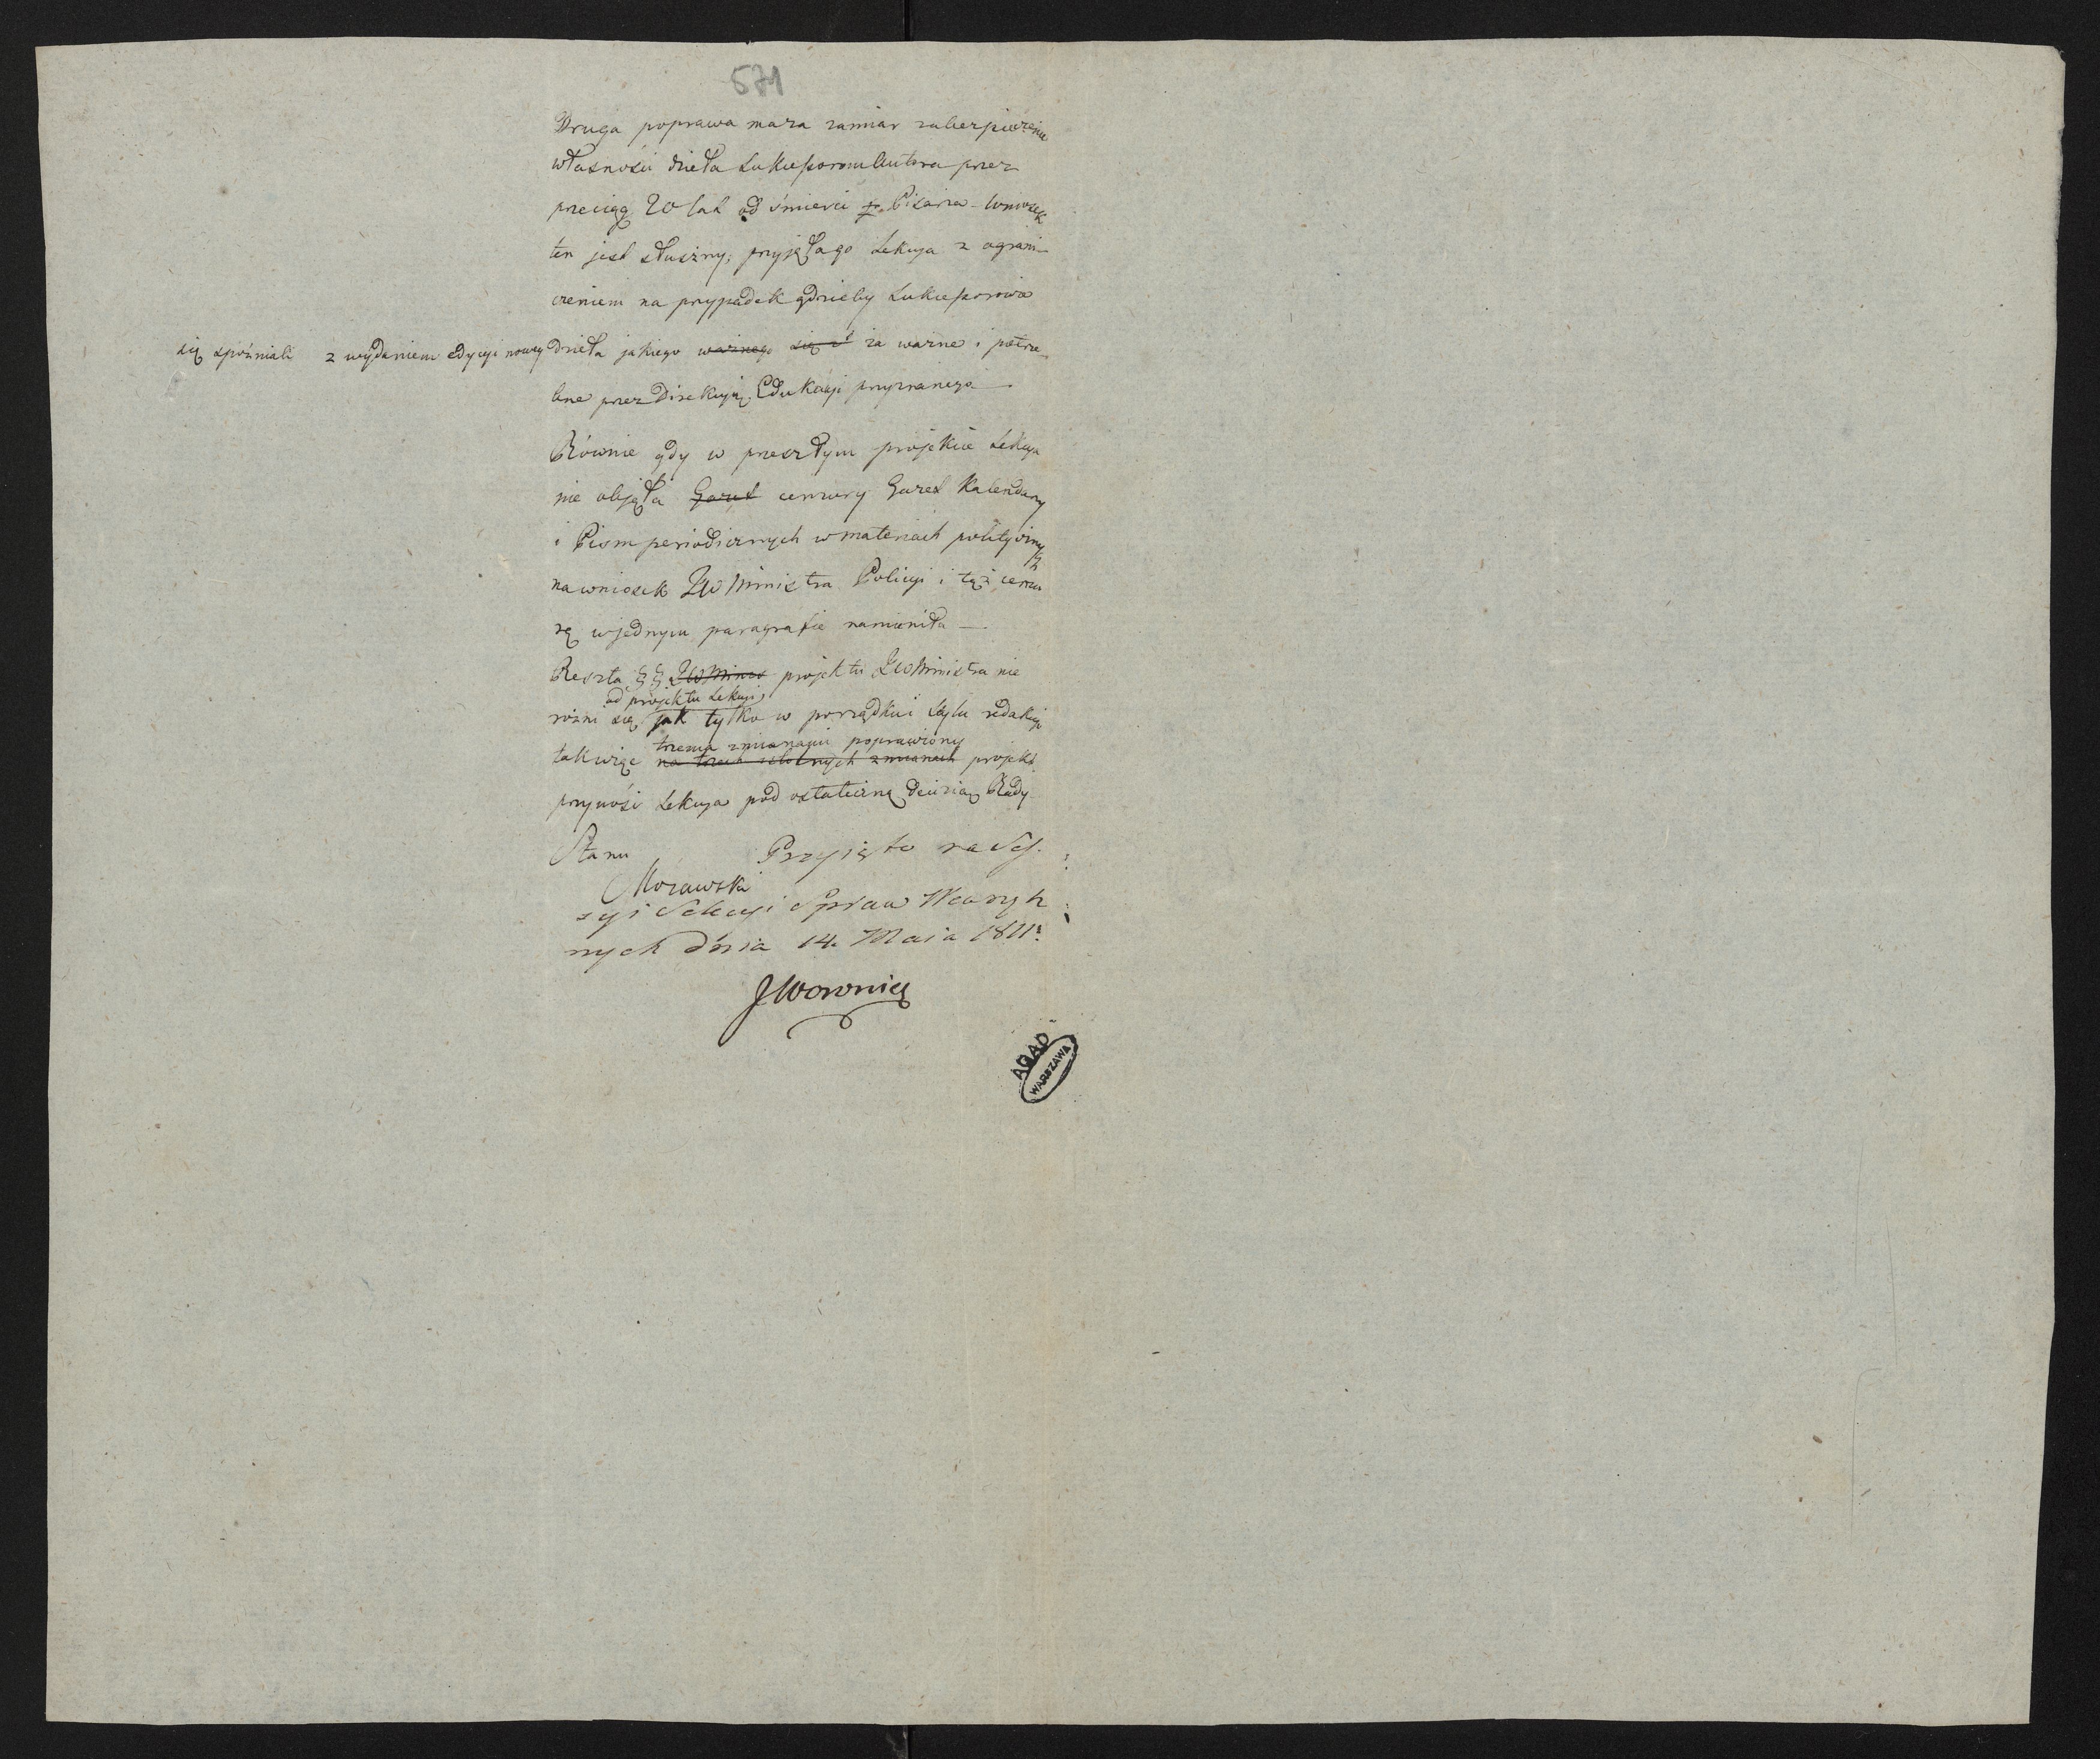 571
Druga poprawa ma za zamiar zabezpieczenie
własności dzieła Sukcessorom Autora przez
przeciąg 20 lat od śmierci Pisarza - Wniosek
ten jest słuszny; przyjęła go Sekcya z ograni-
czeniem na przypadek gdzieby Sukcessorowie
się spóźniali z wydaniem edycyi nowey dzieła jakiego ważnego się za ważne i potrze-
bne przez Direkcyią Edukacyi przyznanego —
Równie gdy w przeszłym projekcie Sekcya
nie objęła Gazet cenzury Gazet Kalendarzy
i Pism periodicznych w materiach politycznych
na wniosek JW Ministra Policyi i tęż cenzu
rę w jednym paragrafie namieniła —
Reszta §§ JW Minis projektu JW Ministra nie
od projektu Sekcyi
rózni się jak tylko w porządku i stylu redakcyi
trzema zmianami poprawiony
tak więc na trzech istotnych zmianach projekt
przynosi Sekcya pod ostateczną decizią Rady
Stanu Przyięto na Ses.
Morawski
syi Sekcyi Spraw Wewnętrz
nych dnia 14. Maia 1811.
AGAD
WARSZAWA